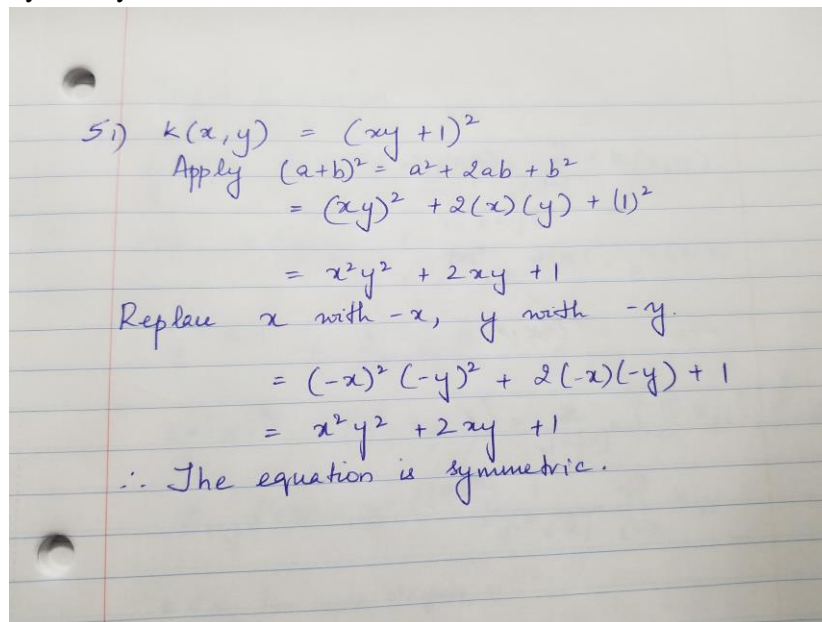 51) k(x,y) = (xy + 1)²
Apply (a+b)² = a² + 2ab + b²
= (xy)² + 2(x)(y) + (1)²
= x²y² + 2xy + 1
Replace x with -x, y with -y.
= (-x)² (-y)² + 2(-x)(-y) + 1
= x²y² + 2xy + 1
∴ The equation is symmetric.